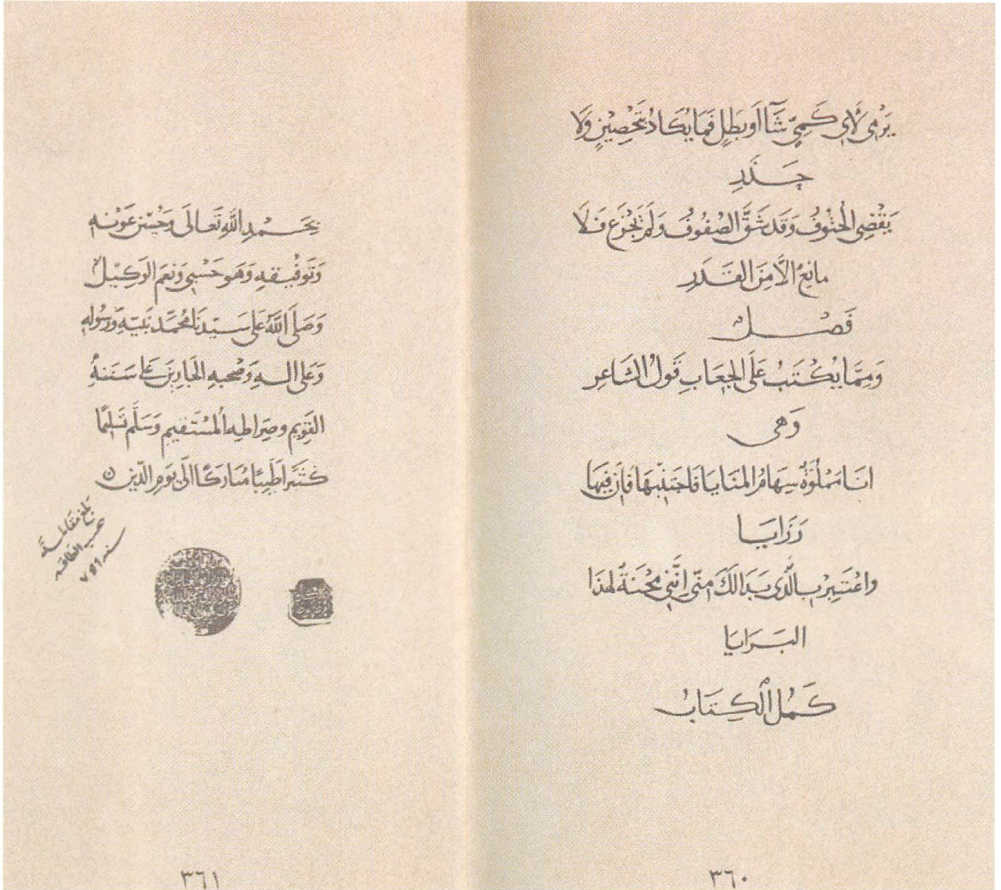 يَرْمِي لِأَيِّ كَمِيٍّ شَآءَ أَوْ بَطَلٍ فَمَا يُكَادُ بِتَحْصِيْنٍ وَلَا
جَنَدِ
يَقْضِي الْحُتُوفُ وَقَد شَقَّ الصُّفُوفُ وَلَمْ يَجْزَعْ فَلَا
مانِعٌ الَّا مِنَ القَدَرِ
فَصْلٌ
وَمِمَّا يُكْتَبُ عَلَى الجِعَابِ قَولُ الشَاعِرِ
وَهِي
انَا مَمْلُوَّةٌ سِهَامُ المَنَايَا فَاجْتَنِبْهَا فَإِنَّ فِيهَا
رَزَايَا
وَاعْتَبِرْ بِالَّذِي بَدَا لَكَ مِنِّي إِنَّنِي مِحْنَةٌ لِهَذَا
البَرَايَا
كَمُلَ الْكِتَابُ
٣٦٠
بِحَمْدِ اللَّهِ تَعَالَى وَحُسْنِ عَوْنِهِ
وَتَوْفِيقِهِ وَهُوَ حَسْبِي وَنِعْمَ الوَكِيلُ
وَصَلَّى اللَّهُ عَلَى سَيِّدِنَا مُحَمَّدٍ نَبِيِّهِ وَرَسُولِهِ
وَعَلَى الِهِ وَصَحْبِهِ عَلَى سَنَنِهِ
القَوِيمِ وَصِرَاطِهِ الْمُسْتَقِيمِ وَسَلَّمَ تَسْلِيمًا
كَثِيرًا طَيِّبًا مُبَارَكًا الَى يَوْمِ الدِّينِ
بلغ مقابلة
حسب الطاقة
سنة
٣٦١